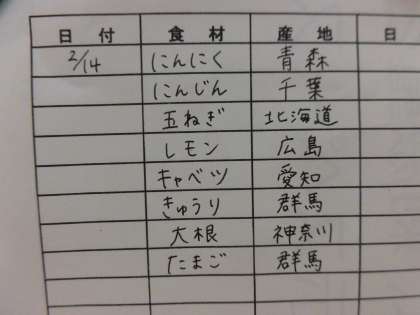 日付 食材 産地 日
2/14 にんにく 青森
にんじん 千葉
玉ねぎ 北海道
レモン 広島
キャベツ 愛知
きゅうり 群馬
大根 神奈川
たまご 群馬